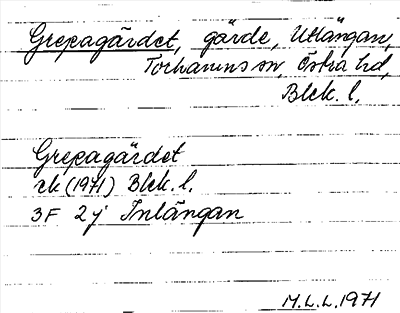 Grepagärdet, gärde, Utlängan,
Torhamns sn, Östra hd,
Blek. l.
Grepagärdet
ek (1971) Blek. l.
3F 2j Inlängan
M.L.L. 1971